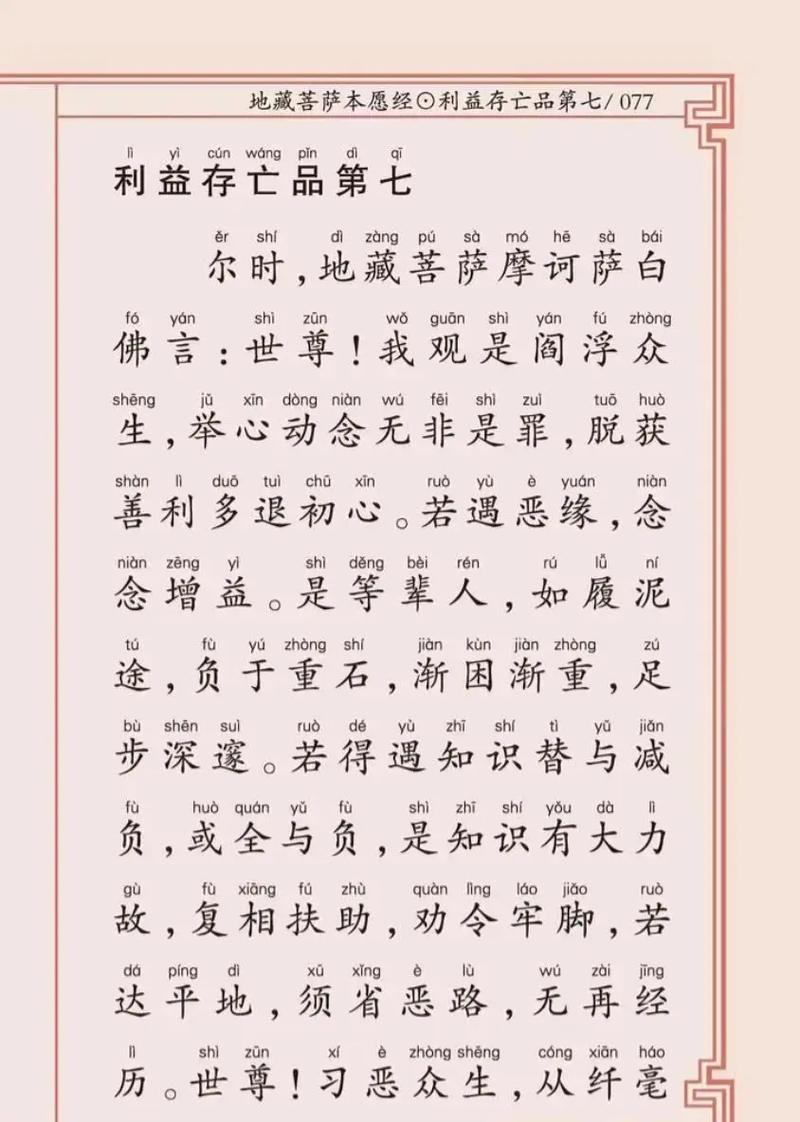 地藏菩萨本愿经⊙利益存亡品第七/ 077
lì yì cún wáng pǐn dì qī
利益存亡品第七
ěr shí dì zàng pú sà mó hē sà bái
尔时,地藏菩萨摩诃萨白
fó yán shì zūn wǒ guān shì yán fú zhòng
佛言:世尊!我观是阎浮众
shēng jǔ xīn dòng niàn wú fēi shì zuì tuō huò
生,举心动念无非是罪,脱获
shàn lì duō tuì chū xīn ruò yù è yuán niàn
善利多退初心。若遇恶缘,念
niàn zēng yì shì děng bèi rén rú lǚ ní
念增益。是等辈人,如履泥
tú fù yú zhòng shí jiàn kùn jiàn zhòng zú
途,负于重石,渐困渐重,足
bù shēn suì ruò dé yù zhī shí tì yǔ jiǎn
步深邃。若得遇知识替与减
fù huò quán yǔ fù shì zhī shí yǒu dà lì
负,或全与负,是知识有大力
gù fù xiāng fú zhù quàn lìng láo jiǎo ruò
故,复相扶助,劝令牢脚,若
dá píng dì xū xǐng è lù wú zài jīng
达平地,须省恶路,无再经
lì shì zūn xí è zhòng shēng cóng xiān háo
历。世尊!习恶众生,从纤毫